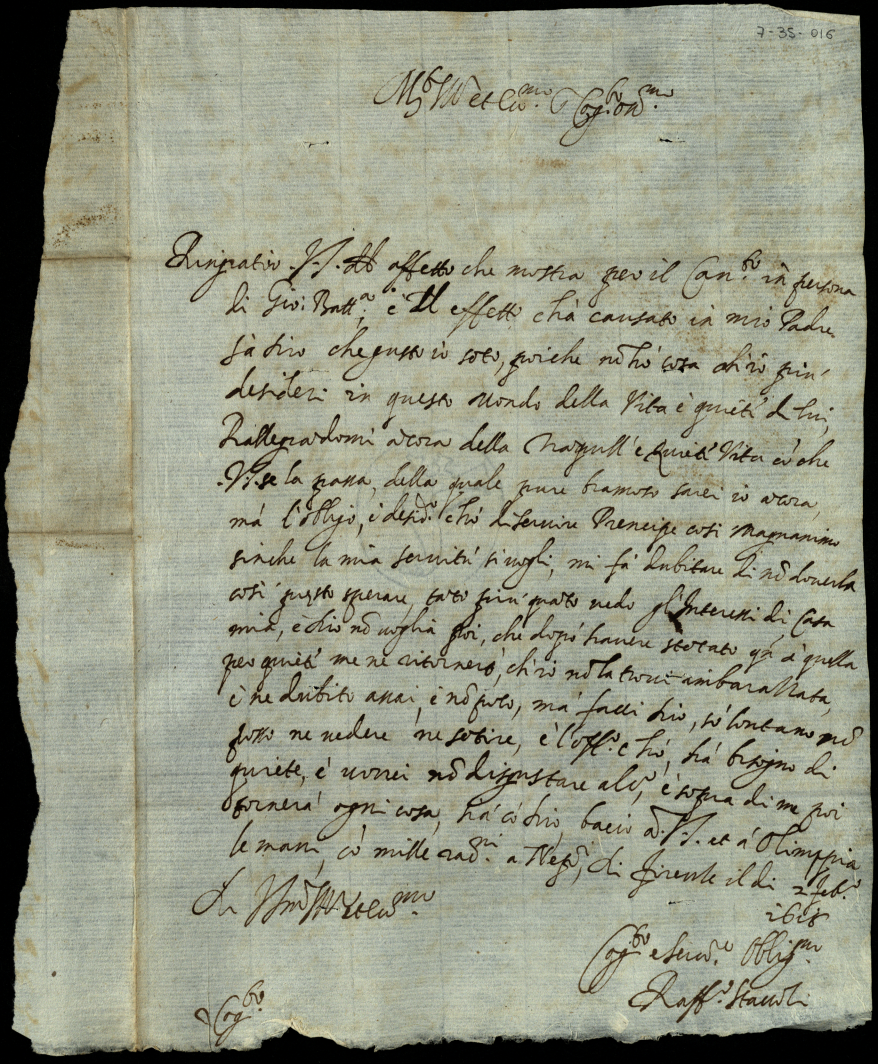 7-35-016
et
Ringratio V.S. affetto che mostra per il in persona
di Gio: Batt.a, è Il effetto ch'hà causato in mio Padre
sà Dio che gusto io soto, poiche nõ hò cosa ch'io piu'
desideri in questo Mondo della Vita è quiete di lui,
Rallegradomi àcora della Vita cõ che
V.S. se la passa, della quale pure bramoso sarei io àcora,
mà l'obligo, è desid.o c'hò di servire Prencipe così magnanimo
sinche la mia servitù si vogli, mi fà dubitare di nõ doverla
così presto sperare, tãto piu' quãto vedo gl'Interessi di Casa
mia, è Dio nõ voglia poi, che dopò havere qà à quella
per quiete me ne ritornerò, ch'io nõ la trovi imbarazzata,
è ne dubito assai, è nõ poco, mà facci Dio, sõ lontano nõ
posso ne vedere ne sotire, è l'off.o c'hò, hà bisogno di
quiete, è vorrei nõ disgustare alc.o, è sopra di me poi
tornerà ogni cosa, cõ Dio, bacio à V.S. et à Olimppia
le mani, cõ mille a Nep.i, di Firenze il di 2 Feb.o
Di
e Ser.re Oblig.mo
Raff.o Staccoli